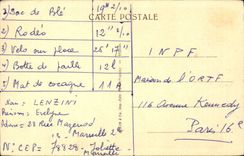 CARTE POSTALE
1/ Sac de Blé 19"2/10
2/ Rodéo 12" 1/10
3/ Vélo sur place 25' 17"
4/ Botte de paille 12l
5/ Mat de cocagne 11 A
Nom: LENZINI
Prénom: Evelyne
Adresse: 28 Rue Mazenod
Marseille 2e
N° CCP: 78828 Joliette
Marseille
INPF
Maison de l'ORTF
116 Avenue Kennedy
Paris 16e